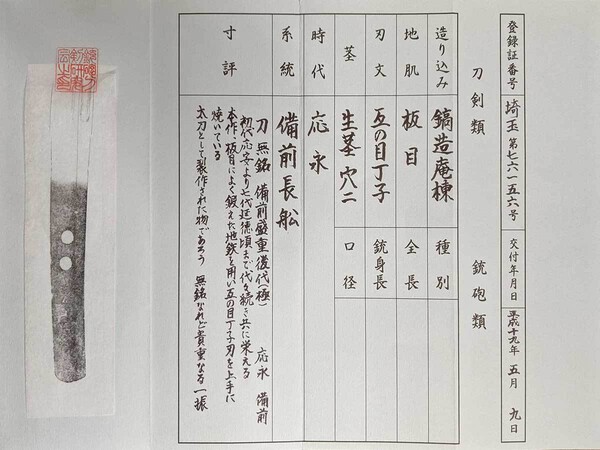 登録証番号 埼玉 第七六一五六号 交付年月日 平成十九年 五月 九日
刀剣類 銃砲類
造り込み 鎬造庵棟 種別
地肌 板目 全長
刃文 互の目丁子 銃身長
茎 生茎 穴二 口径
時代 応永
系統 備前長舩
寸評 刀 無銘 備前盛重後代(極) 応永 備前
初代応安より七代延徳頃まで代々続き共に栄える
本作、板目によく鍛えた地鉄を用い互の目丁子刃を上手に
焼いている
太刀として製作された物であろう 無銘なれど貴重なる一振